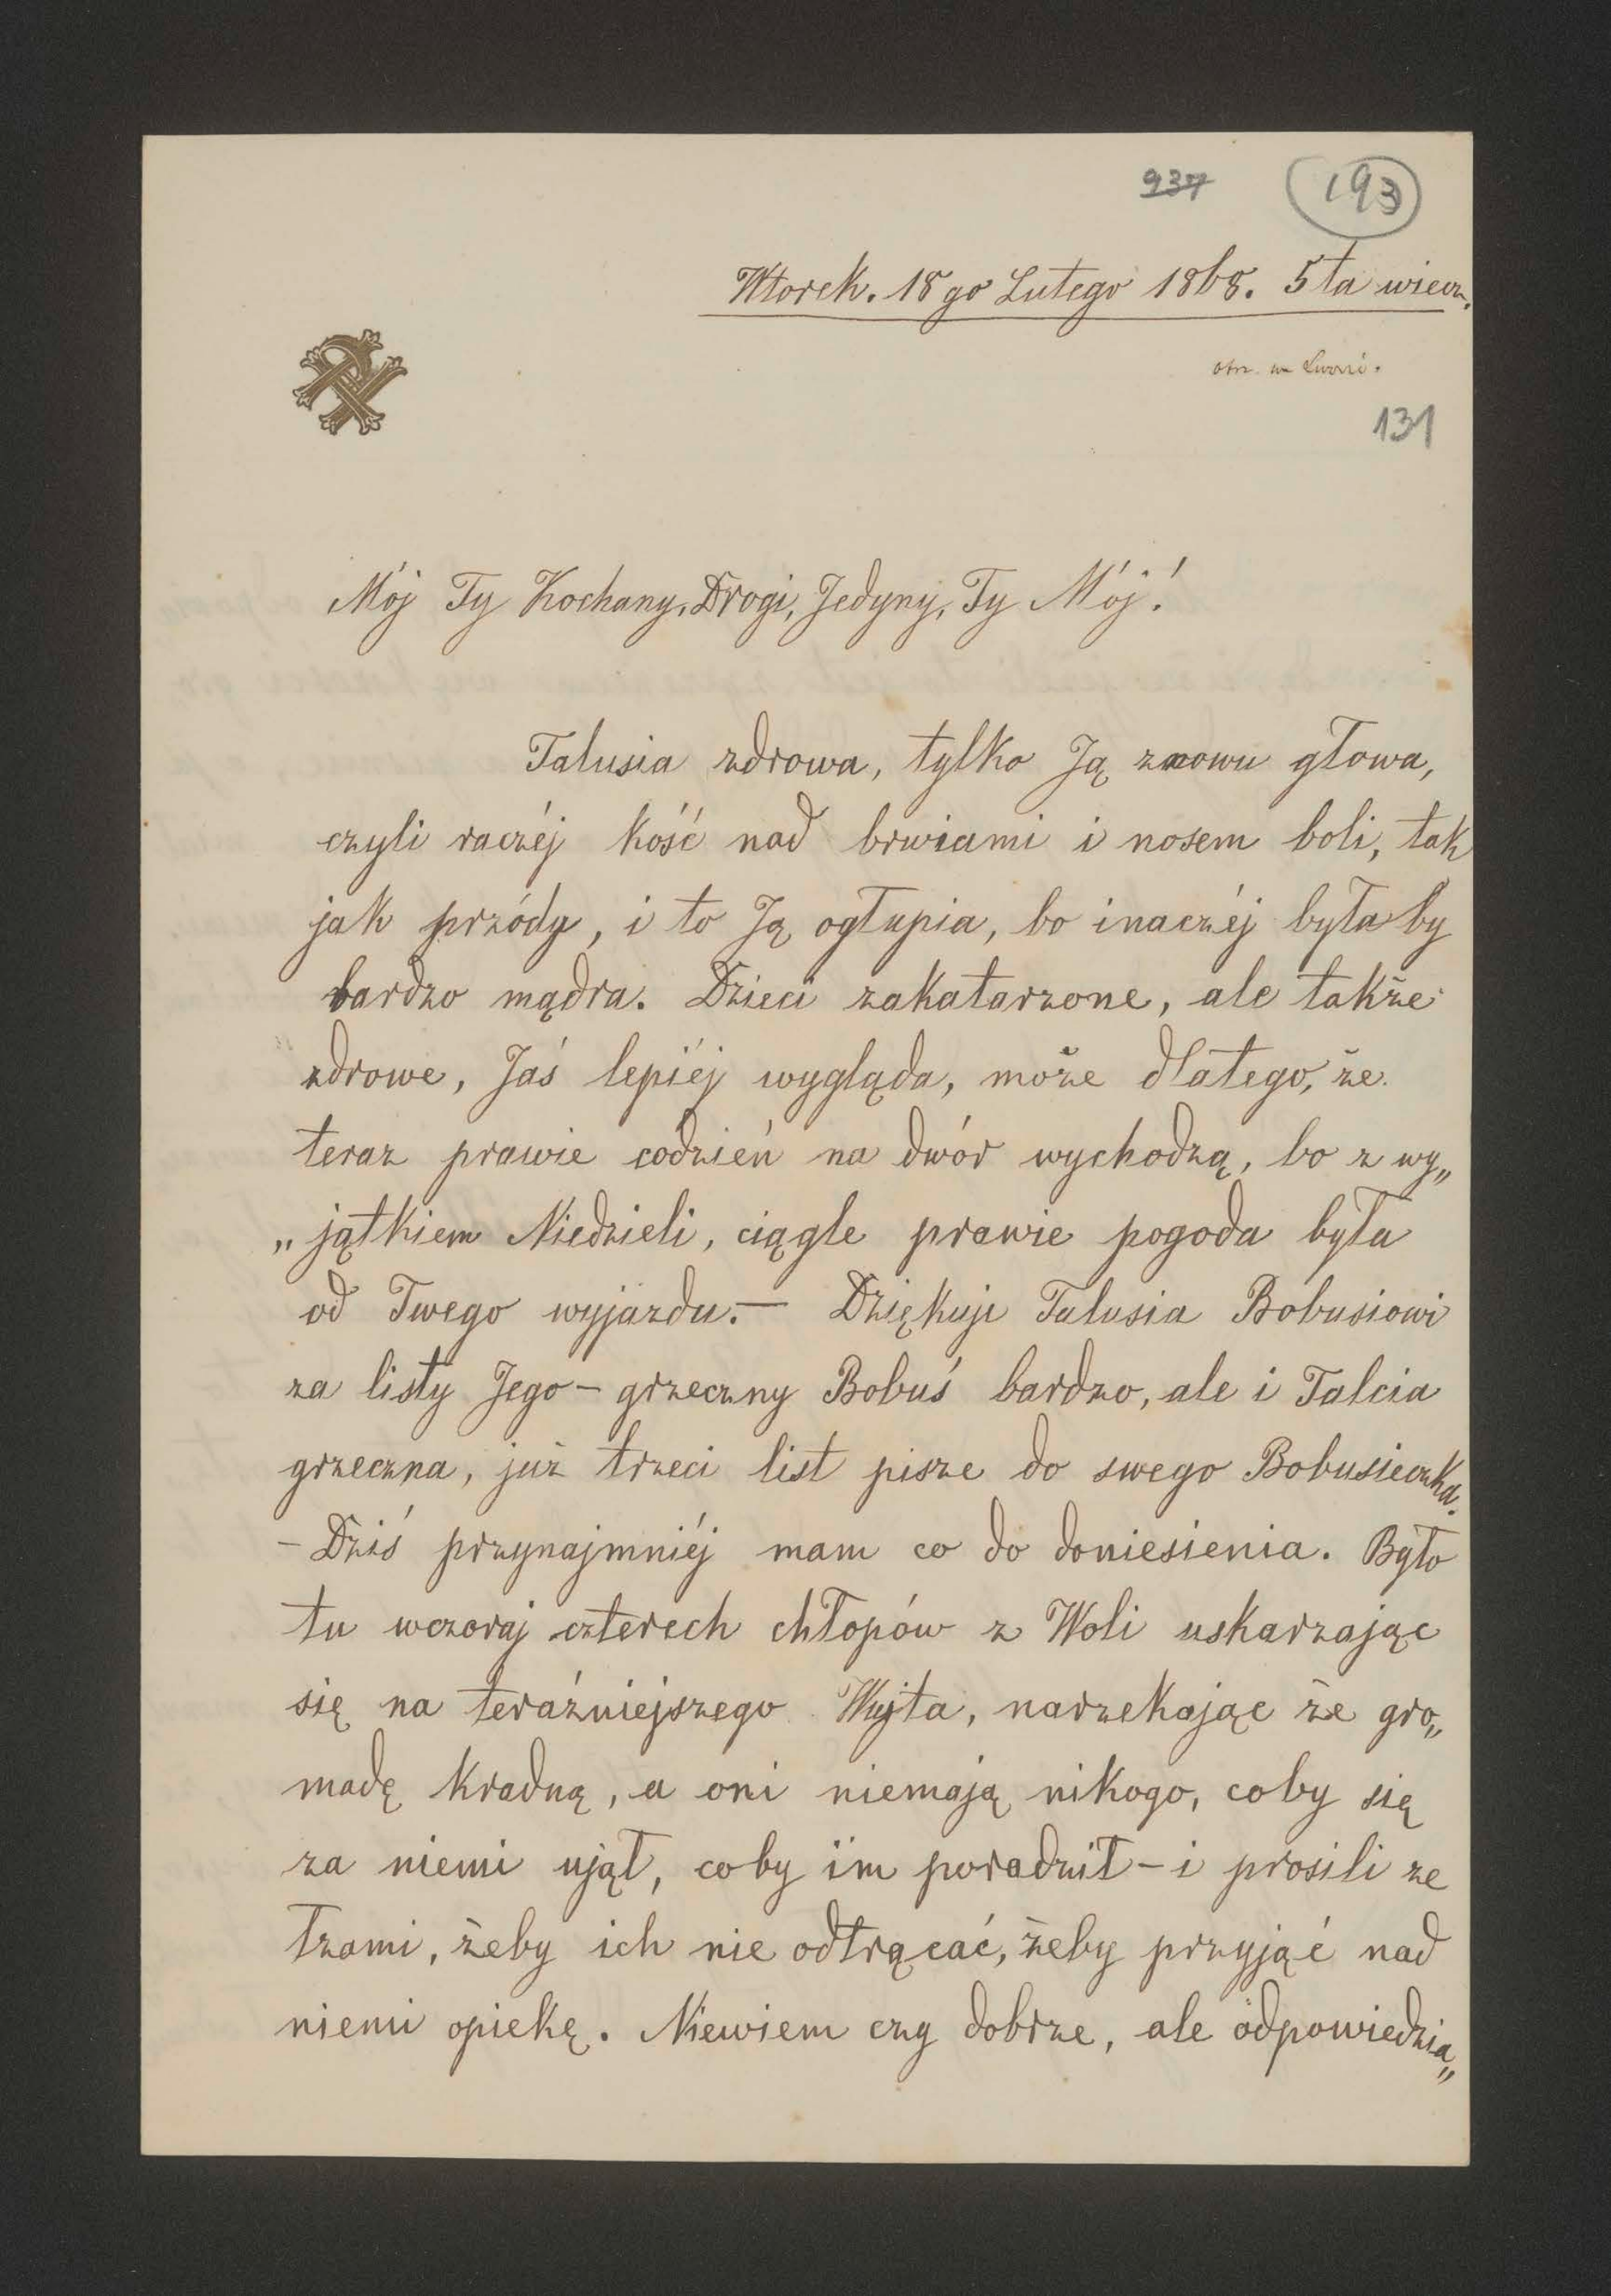 937 193
Wtorek. 18go Lutego 1868. 5ta wiecz.
otrz. we Lwowi.
131
Mój Ty Kochany, Drogi, Jedyny, Ty Mój!
Talusia zdrowa, tylko Ją znowu głowa,
czyli raczéj kość nad brwiami i nosem boli, tak
jak przódy, i to Ją ogłupia, bo inaczéj byłaby
bardzo mądra. Dzieci zakatarzone, ale także
zdrowe, Jaś lepiéj wygląda, może dlatego, że
teraz prawie codzień na dwór wychodzą, bo z wy„
„jątkiem Niedzieli, ciągle prawie pogoda była
od Twego wyjazdu.— Dziękuje Talusia Bobusiowi
za listy Jego – grzeczny Bobuś bardzo, ale i Talcia
grzeczna, już trzeci list pisze do swego Bobusieczka.
– Dziś przynajmniéj mam co do doniesienia. Było
tu wczoraj czterech chłopów z Woli uskarzając
się na teraźniejszego Wujta, narzekając że gro„
madę kradną, a oni niemają nikogo, coby się
za niemi ujął, coby im poradził – i prosili ze
łzami, żeby ich nie odtrącać, żeby przyjąć nad
niemi opiekę. Niewiem czy dobrze, ale odpowiedzia„